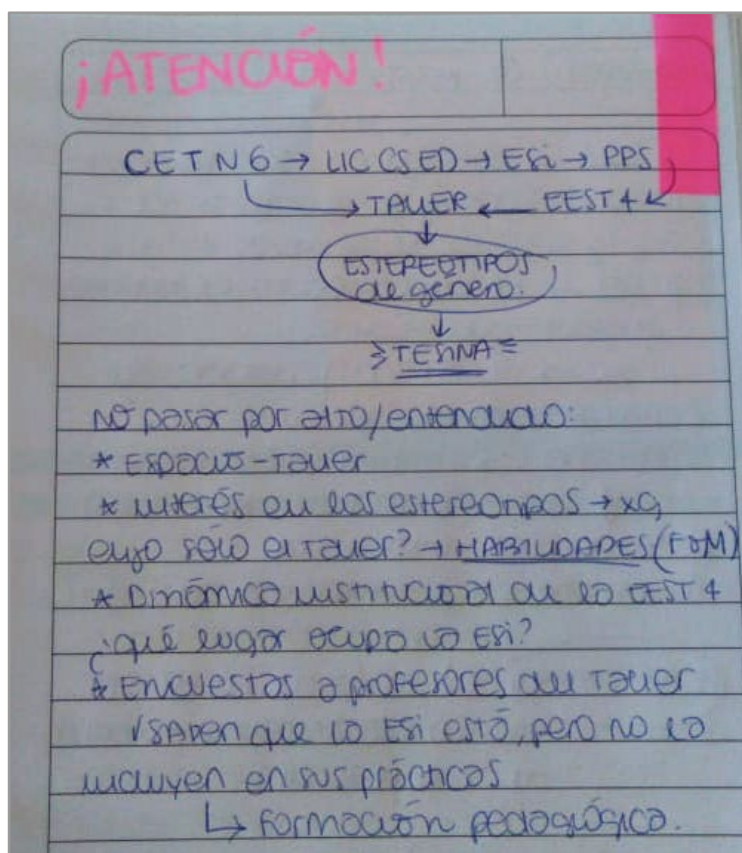 ¡ATENCIÓN!
CET N 6 → LIC CS ED → ESi → PPS
→ TALLER ← EEST 4
↓
ESTEREOTIPOS
de género.
↓
TESINA
NO pasar por alto/entendido:
* ESPACIO - Taller
* interés en los estereotipos → xq
elijo sólo el taller? → HABILIDADES (F o M)
* Dinámica institucional de la EEST 4
¿qué lugar ocupa la ESi?
* Encuestas a profesores del Taller
✓ SABEN que la ESi está, pero no la
incluyen en sus prácticas
↳ Formación pedagógica.